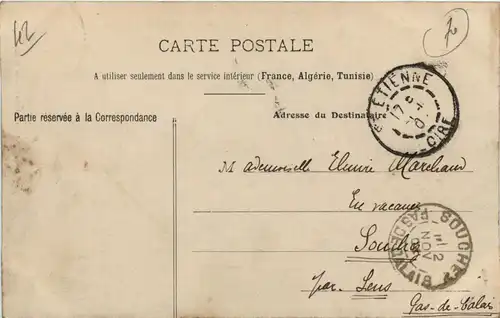 42
CARTE POSTALE
A utiliser seulement dans le service intérieur (France, Algérie, Tunisie)
Partie réservée à la Correspondance
Adresse du Destinataire
ST ETIENNE
LOIRE
Mademoiselle Elmire Marchand
En vacances
Souchez
par Lens
Pas-de-Calais
SOUCHEZ
PAS DE CALAIS
2
NOV